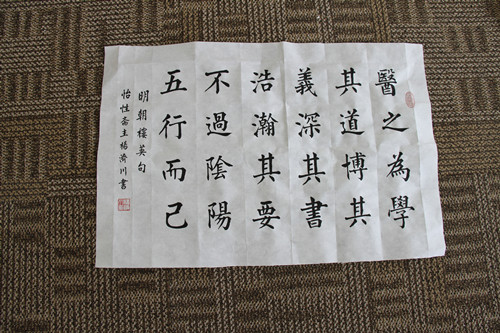 醫之為學
其道博其
義深其書
浩瀚其要
不過陰陽
五行而己
明朝樓英句
怡性斋主楊濟川書